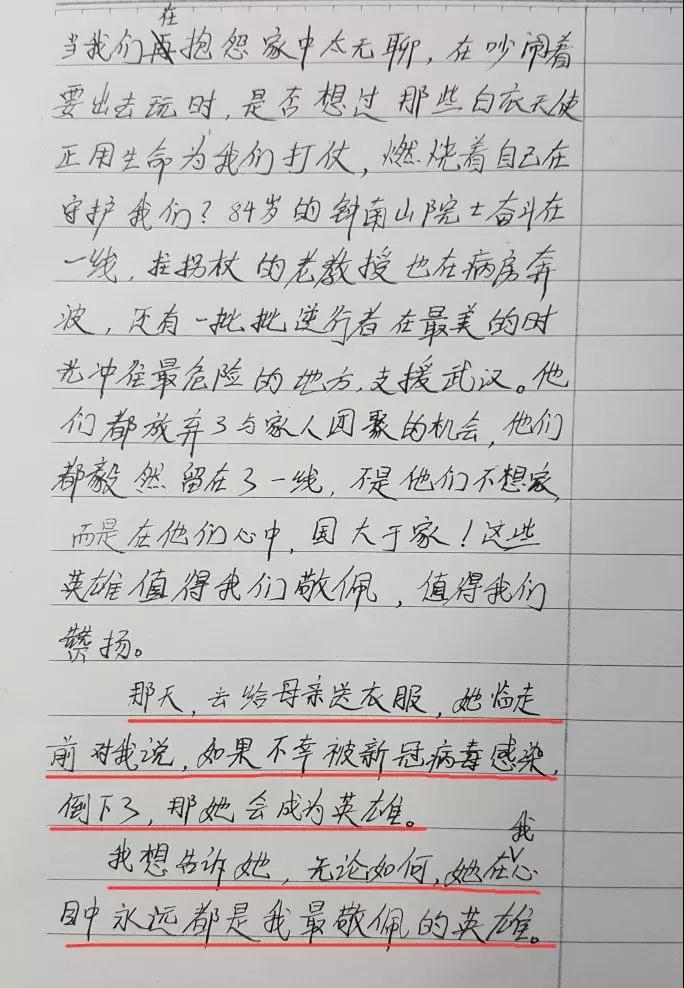 当我们在抱怨家中太无聊，在吵闹着
要出去玩时，是否想过那些白衣天使
正用生命为我们打仗，燃烧着自己在
守护我们？84岁的钟南山院士奋斗在
一线，拄拐杖的老教授也在病房奔
波，还有一批批逆行者在最美的时
光冲往最危险的地方，支援武汉。他
们都放弃了与家人团聚的机会，他们
都毅然留在了一线，不是他们不想家，
而是在他们心中，国大于家！这些
英雄值得我们敬佩，值得我们
赞扬。
那天，去给母亲送衣服，她临走
前对我说，如果不幸被新冠病毒感染，
倒下了，那她会成为英雄。
我想告诉她，无论如何，她在我心
目中永远都是我最敬佩的英雄。